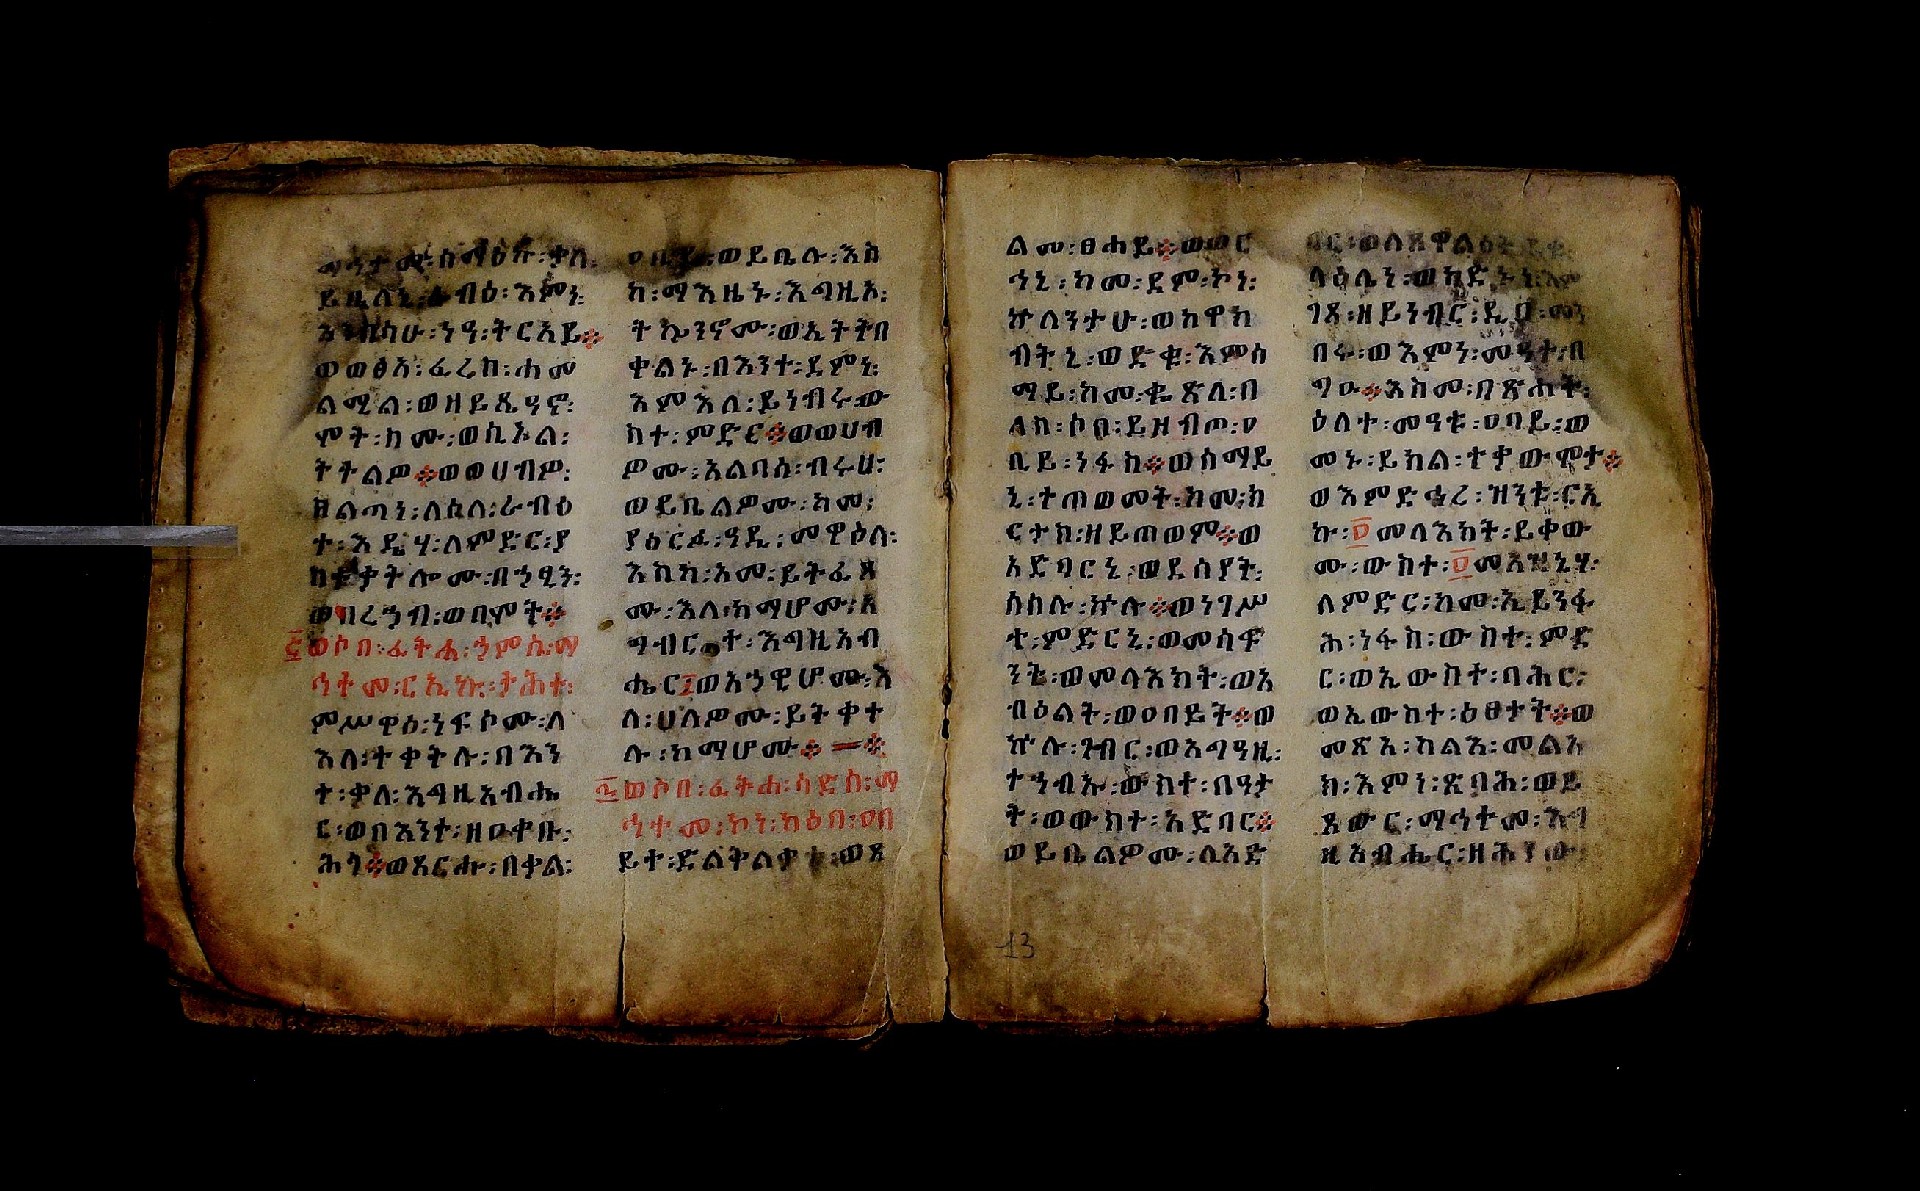 ማኅተመ፡ ሰማዕኩ፡ ቃለ፡
ይቤለኒ፡ ራብዕ፡ እምነ፡
እንስሳሁ፡ ነዓ፡ ትርአይ፨
ወወፅአ፡ ፈረስ፡ ሐመ
ልሚል፡ ወዘይጼዓኖ፡
ሞት፡ ስሙ፡ ወሲኦል፡
ትትልዎ፨ወወሀብዎ፡
ሥልጣነ፡ ለሲሰ፡ ራብዕ
ተ፡ እዴሃ፡ ለምድር፡ ያ
ስቴቃትሎሙ፡ በኃፂን፡
ወበረኃብ፡ ወበሞት፨
፮ወሶበ፡ ፈትሐ፡ ኃምስ፡ ማ
ኅተመ፡ ርኢኩ፡ ታሕተ፡
ምሥዋዕ፡ ነፍሶሙ፡ ለ
እለ፡ ተቀትሉ፡ በእን
ተ፡ ቃለ፡ እግዚአብሔ
ር፡ ወበእንተ፡ ዘዐቀቡ፡
ሕጎ፨ወጸርሑ፡ በቃል፡
ዐቢይ፡ ወይቤሉ፡ እስ
ከ፡ ማእዜኑ፡ እግዚኦ፡
ትኴንኖሙ፡ ወኢትትበ
ቀልኑ፡ በእንተ፡ ደምነ፡
እምእለ፡ ይነብሩ፡ ው
ስተ፡ ምድር፨ወወሀብ
ዎሙ፡ አልባሰ፡ ብሩህ፡
ወይቤልዎሙ፡ ከመ፡
ያዕርፉ፡ ዓዲ፡ መዋዕለ፡
እስከ፡ አመ፡ ይትፌጸ
ሙ፡ እለ፡ ከማሆሙ፡ አ
ግብርተ፡ እግዚአብ
ሔር፤ወአኃዊሆሙ፡ እ
ለ፡ ሀለዎሙ፡ ይትቀተ
ሉ፡ ከማሆሙ፨
፯ወሶበ፡ ፈትሐ፡ ሳድስ፡ ማ
ኅተመ፡ ኮነ፡ ከዕበ፡ ዐበ
ይተ፡ ድልቅልቃተ፡ ወጸ
ልመ፡ ፀሐይ፨ወወር
ኅኒ፡ ከመ፡ ደም፡ ኮነ፡
ኵለንታሁ፡ ወከዋክ
ብትኒ፡ ወድቁ፡ እምሰ
ማይ፡ ከመ፡ ቈጽለ፡ በ
ለስ፡ ሶበ፡ ይዘብጦ፡ ዐ
ቢይ፡ ነፋስ፨ወሰማይ
ኒ፡ ተጠወመት፡ ከመ፡ ክ
ርታስ፡ ዘይጠወም፨ወ
አድባርኒ፡ ወደሰያት፡
ሰሰሉ፡ ኵሉ፨ወነገሥ
ቱ፡ ምድርኒ፡ ወመሳፍ
ንቲ፡ ወመላእክት፡ ወአ
ብዕልት፡ ወዐበይት፨ወ
ኵሉ፡ ገብር፡ ወአግዓዚ፡
ተኀብኡ፡ ውስተ፡ በዓታ
ት፡ ወውስተ፡ አድባር፨
ወይቤልዎሙ፡ ለአድ
ባር፡ ወለጸዋልዕት፡ ደቁ፡
ላዕሌነ፡ ወክድኑነ፡ እም
ገጸ፡ ዘይነብር፡ ዲበ፡ መን
በሩ፡ ወእምነ፡ መዓተ፡ በ
ግዑ፨እስመ፡ በጽሐት፡
ዕለተ፡ መዓቱ፡ ዐባይ፡ ወ
መኑ፡ ይክል፡ ተቃውሞታ፨
ወእምድኅረ፡ ዝንቱ፡ ርኢ
ኩ፡ ፬መላእክት፡ ይቀው
ሙ፡ ውስተ፡ ፬መአዝኒሃ፡
ለምድር፡ ከመ፡ ኢይንፋ
ሕ፡ ነፋስ፡ ውስተ፡ ምድ
ር፡ ወኢውስተ፡ ባሕር፡
ወኢውስተ፡ ዕፀታት፨ወ
መጽአ፡ ካልእ፡ መልአ
ክ፡ እምነ፡ ጽባሕ፡ ወይ
ጸውር፡ ማኅተመ፡ እግ
ዚአብሔር፡ ዘሕያው፡
13